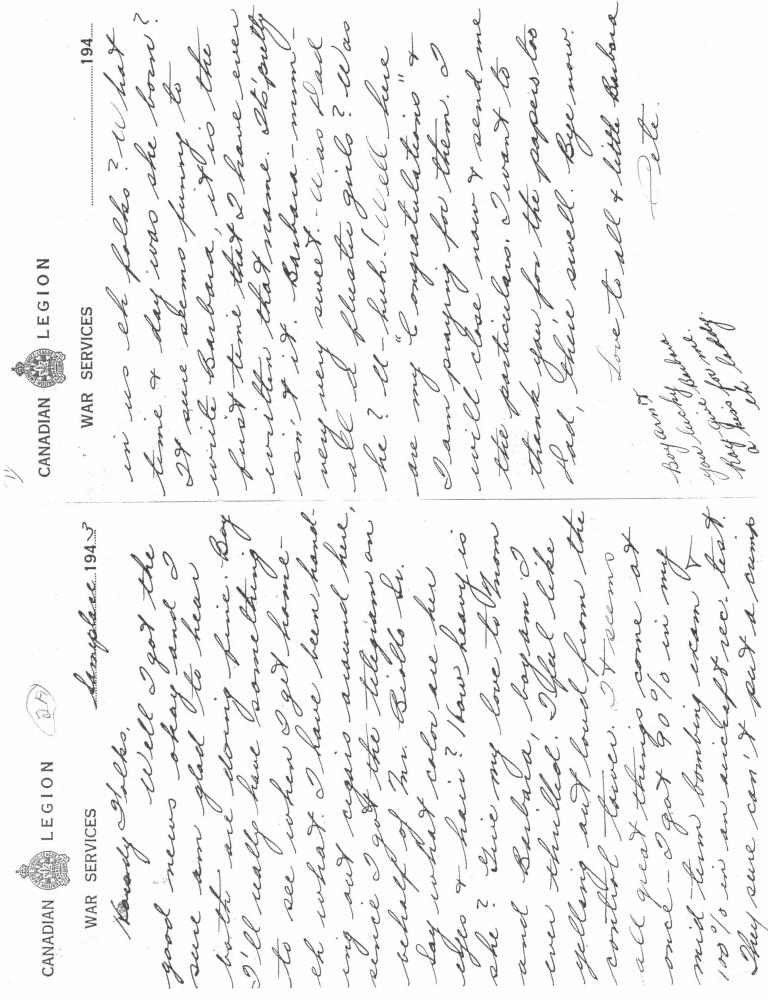 24
CANADIAN LEGION
WAR SERVICES
Someplace 194 3
Howdy Folks,
Well I got the
good news okay and I
sure am glad to hear
both are doing fine. Boy
I'll really have something
to see when I get home -
eh what. I have been hand-
ing out cigars around here,
since I got the telegram on
behalf of Mr. Sr.
Say what color are her
eyes & hair? How heavy is
she? Give my love to Mom
and Barbara, boy am I
ever thrilled. I feel like
yelling out loud from the
control tower. It seems
all great things come at
once - I got 90% in my
mid term bombing exam &
100% in an aircraft rec. test.
They sure can't put a crimp
CANADIAN LEGION
WAR SERVICES
194
in us eh folks? What
time & day was she born?
It sure seems funny to
write Barbara, it is the
first time that I have ever
written that name. It's pretty
isn't it. Barbara - mm -
very very sweet. - Was Dad
all flustered girls? Was
he? U-huh! Well here
are my "Congratulations" &
I am praying for them. I
will close now & send me
the particulars. I want to
thank you for the papers too
Dad, their swell. Bye now.
Love to all & little Barbara
Pete.
Boy arn't
you lucky
Ray give for me
a kiss for
eh laddy.